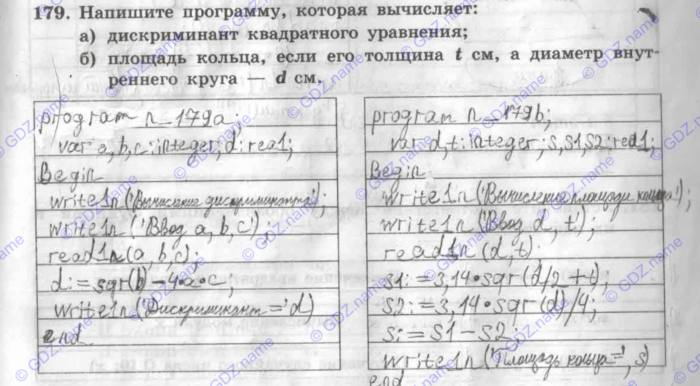 179. Напишите программу, которая вычисляет:
а) дискриминант квадратного уравнения;
б) площадь кольца, если его толщина t см, а диаметр внут-
реннего круга — d см.
program n_179a;
var a,b,c:integer; d:real;
Begin
writeln('Вычисление дискриминанта');
writeln('Ввод a,b,c');
readln(a,b,c);
d:=sqr(b)-4*a*c;
writeln('Дискриминант=' d)
end
program n_179b;
var d,t:integer; s,s1,s2:real;
Begin
writeln('Вычисление площади кольца');
writeln('Ввод d, t);
readln(d,t)
s1:=3,14*sqr(d/2+t);
s2:=3,14*sqr(d)/4;
s:=s1-s2;
writeln('Площадь кольца=', s)
end
© GDZ.name